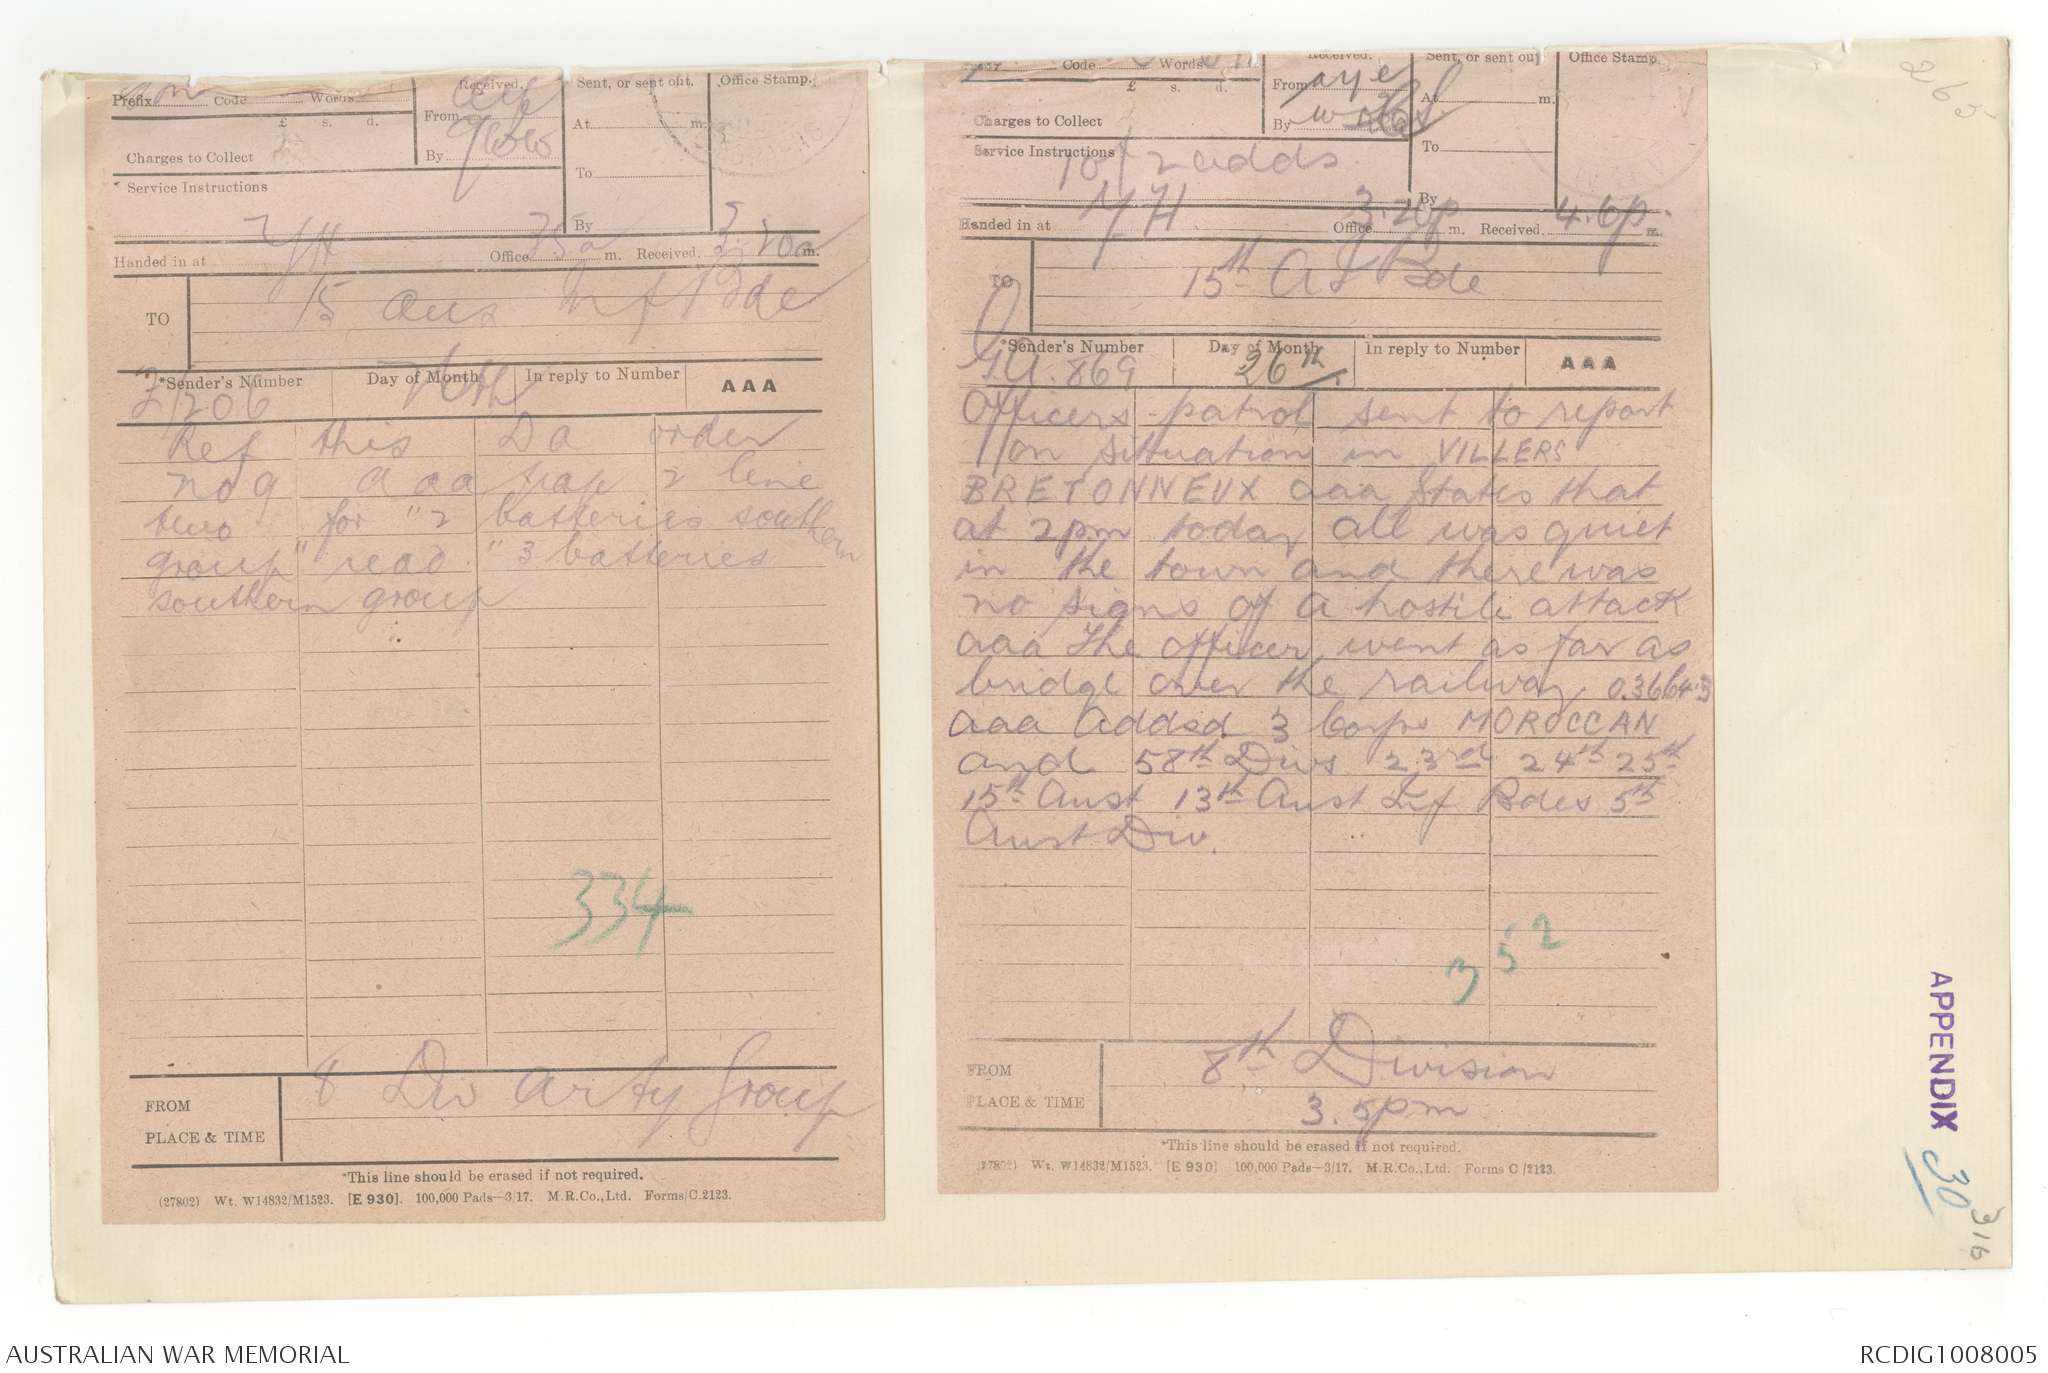 Prefix Code Words
£ s. d.
Charges to Collect
Received.
From
By
Sent, or sent out.
At m.
To
By
Office Stamp.
* Service Instructions
Handed in at YH Office m. Received 3.20a m.
TO 15 Aus Inf Bde
*Sender's Number Day of Month In reply to Number AAA
Z/206
Ref this Da order
no 9 a aaa para 2 line
two for "2 batteries southern
group" read "3 batteries
southern group
334
FROM 8 Div Arty Group
PLACE & TIME
*This line should be erased if not required.
(27802) Wt. W14832/M1523. [E 930]. 100,000 Pads—3/17. M.R.Co.,Ltd. Forms/C.2123.
Code Words
£ s. d.
Charges to Collect
Received.
From
By
Sent, or sent out
At m.
To
By
Office Stamp.
Service Instructions
adds.
Handed in at YH Office 3.20p m. Received 4.6p. m.
TO 15th A I Bde
*Sender's Number Day of Month In reply to Number AAA
G.A. 869 26th
Officers patrol sent to report
on situation in VILLERS
BRETONNEUX aaa States that
at 2pm today all was quiet
in the town and there was
no signs of a hostile attack
aaa The officer went as far as
bridge over the railway O.36b4.3
aaa Addsd 3 Corps MOROCCAN
and 58th Divs 23rd 24th 25th
15th Aust 13th Aust Inf Bdes 5th
Aust Div.
352
FROM 8th Division
PLACE & TIME 3.5pm
*This line should be erased if not required.
(27802) Wt. W14832/M1523. [E 930] 100,000 Pads—3/17. M.R.Co.,Ltd. Forms C/2123.
263
APPENDIX 30
316
AUSTRALIAN WAR MEMORIAL
RCDIG1008005